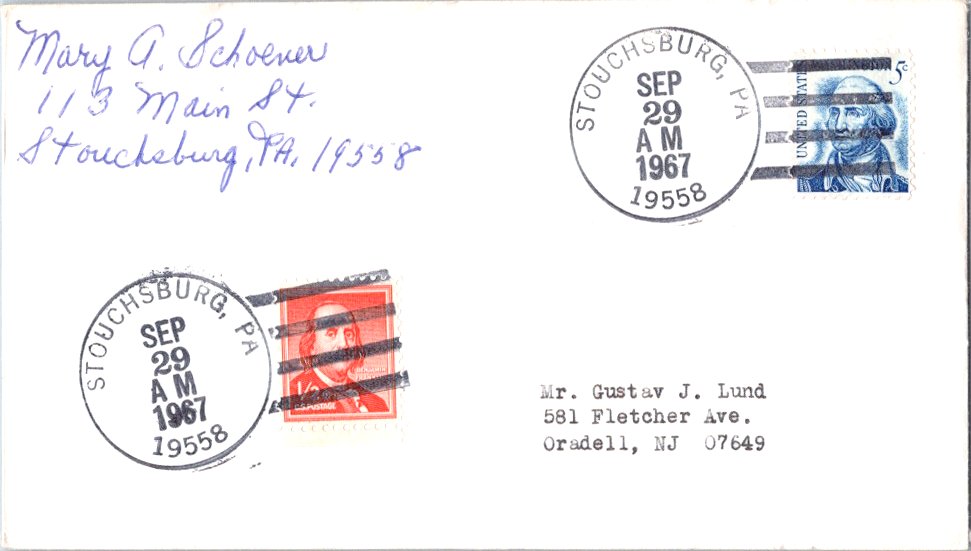 Mary A. Schoener
113 Main St.
Stouchsburg, PA. 19558
STOUCHSBURG, PA
SEP
29
AM
1967
19558
5¢
UNITED STATES
STOUCHSBURG, PA
SEP
29
AM
1967
19558
BENJAMIN
U.S. POSTAGE
Mr. Gustav J. Lund
581 Fletcher Ave.
Oradell, NJ 07649